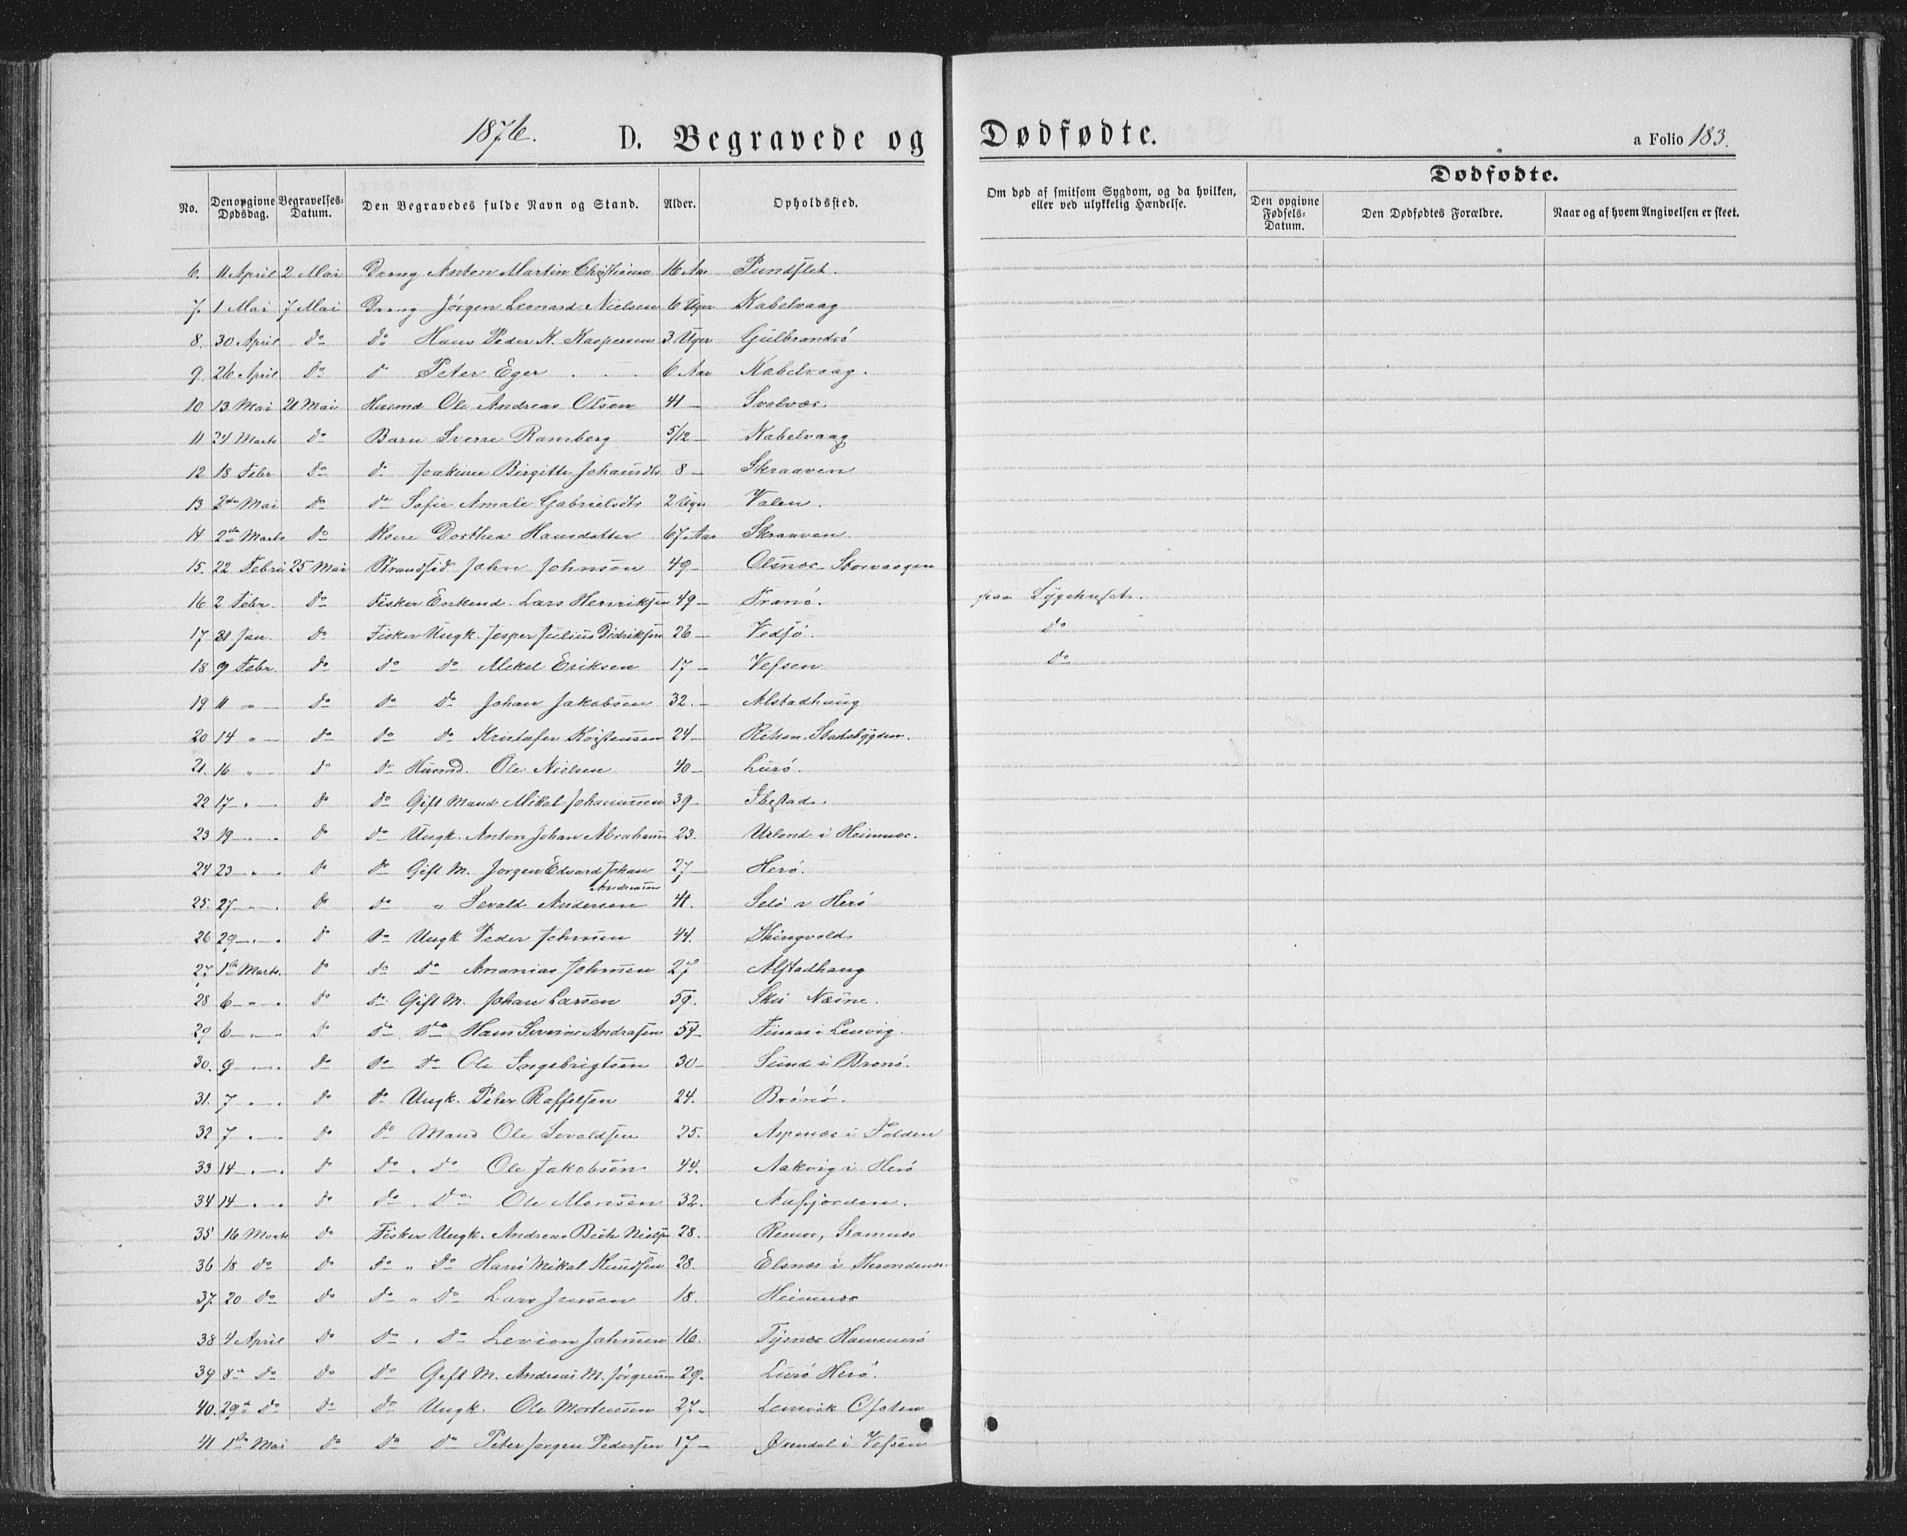 1876. D. Begravede og Dødfødte. a Folio 183.
Dødfødte.
No. Den opgivne Dødsdag. Begravelses-Datum. Den Begravedes fulde Navn og Stand. Alder. Opholdssted. Om død af smitsom Sygdom, og da hvilken, eller ved ulykkelig Hændelse. Den opgivne Fødsels-Datum. Den Dødfødtes Forældre. Naar og af hvem Angivelsen er skeet.
6. 11 April 2 Mai Dreng Anton Martin 16 Aar Pundslet.
7. 1 Mai 7 Mai Dreng Jörgen Leonard Nielsen 6 Uger Kabelvaag
8. 30 April do do Hans Peder K. Kaspersen 3 Uger Gulbrandsö
9. 26 April do d Peter Eger 6 Aar Kabelvaag.
10 13 Mai 21 Mai Husmd Ole Andreas Olsen 41 — Svolvær
11 24 Marts do Barn Sverre Ramberg 5/12 — Kabelvaag
12 18 Febr do d Birgitte 8 — Skraaven
13 2den Mai do do Sofie Amale Gabrielsdtr 2 Uger Valen.
14 2de Marts do Dorthea Hansdatter 67 Aar Skraaven
15. 22 Febr 25 Mai Strandsid John Johnson 49 — Olsnæs Storvaagen
16 2 Febr. do Fisker Enkemd. Lars Henriksen 49 — Tranö. fra Sygehuset.
17 31 Jan. do Fisker Ungk. Jesper Julius Didriksen 26 — Vedsö. do
18 9 Febr do do do Mikel Eriksen 17 — Vefsen do
19 11 " — do do do Johan Jakobsen 32. — Alstadhaug
20 14 " — do do do Kristofer 24 — Stadsbygden.
21. 16 " — d do Husmd. Ole Nielsen 40 — Lurö.
22 17 " — do do Gift Mand Mikal Johannesen 39 Ibestad.
23 19 " — do do Ungk. Anton Johan Abraham 23. i Heimnæs.
24 23 " — do do Gift M. Jorgen Edvard Johan Andreasen 27 — Herö.
25. 27 " — do do " Sevald Andersen 41. Selö Herö
26 29 " — do do Ungk Peder Johnsen 44. Thingvold
27 1ste Marts. do do do Ananias Johnsen 27 Alstadhaug
28 6 " — do do Gift M. Johan Larsen 59. Næsne.
29 6 " — do do do Hans Severin Andrasen 54 — i Lenvig.
30. 9 " — do do do Ole Ingebrigtsen 30 — Sund i Brönö.
31. 7 " — do do Ungk. Peter Raffelsen 24. Brönö.
32 7 " — do do Mand Ole Sevaldsen 25. i Folden
33 14 " — do do " do Ole Jakobsen 44. Aakvig i Herö
34 14 " — do do " do Ole Monsen 32.
35 16 Marts do Fisker Ungk. Andreas 28.
36 18 do do do " do Hans Mikal Knudsen 28. i
37. 20 do do do " do Lars Jensen 18. Heimnæs
38 4 April do do " do Johnsen 16. Hammerö
39 8de do do do Gift M. Andreas M. Jörgensen 29. Lurö Herö.
40. 29de do do do Ungk. Ole Mortensen 27 — Lenvik Ofoten
41 1ste Mai do do do Peter Jorgen Pedersen 17 — Øxendal i Vefsen